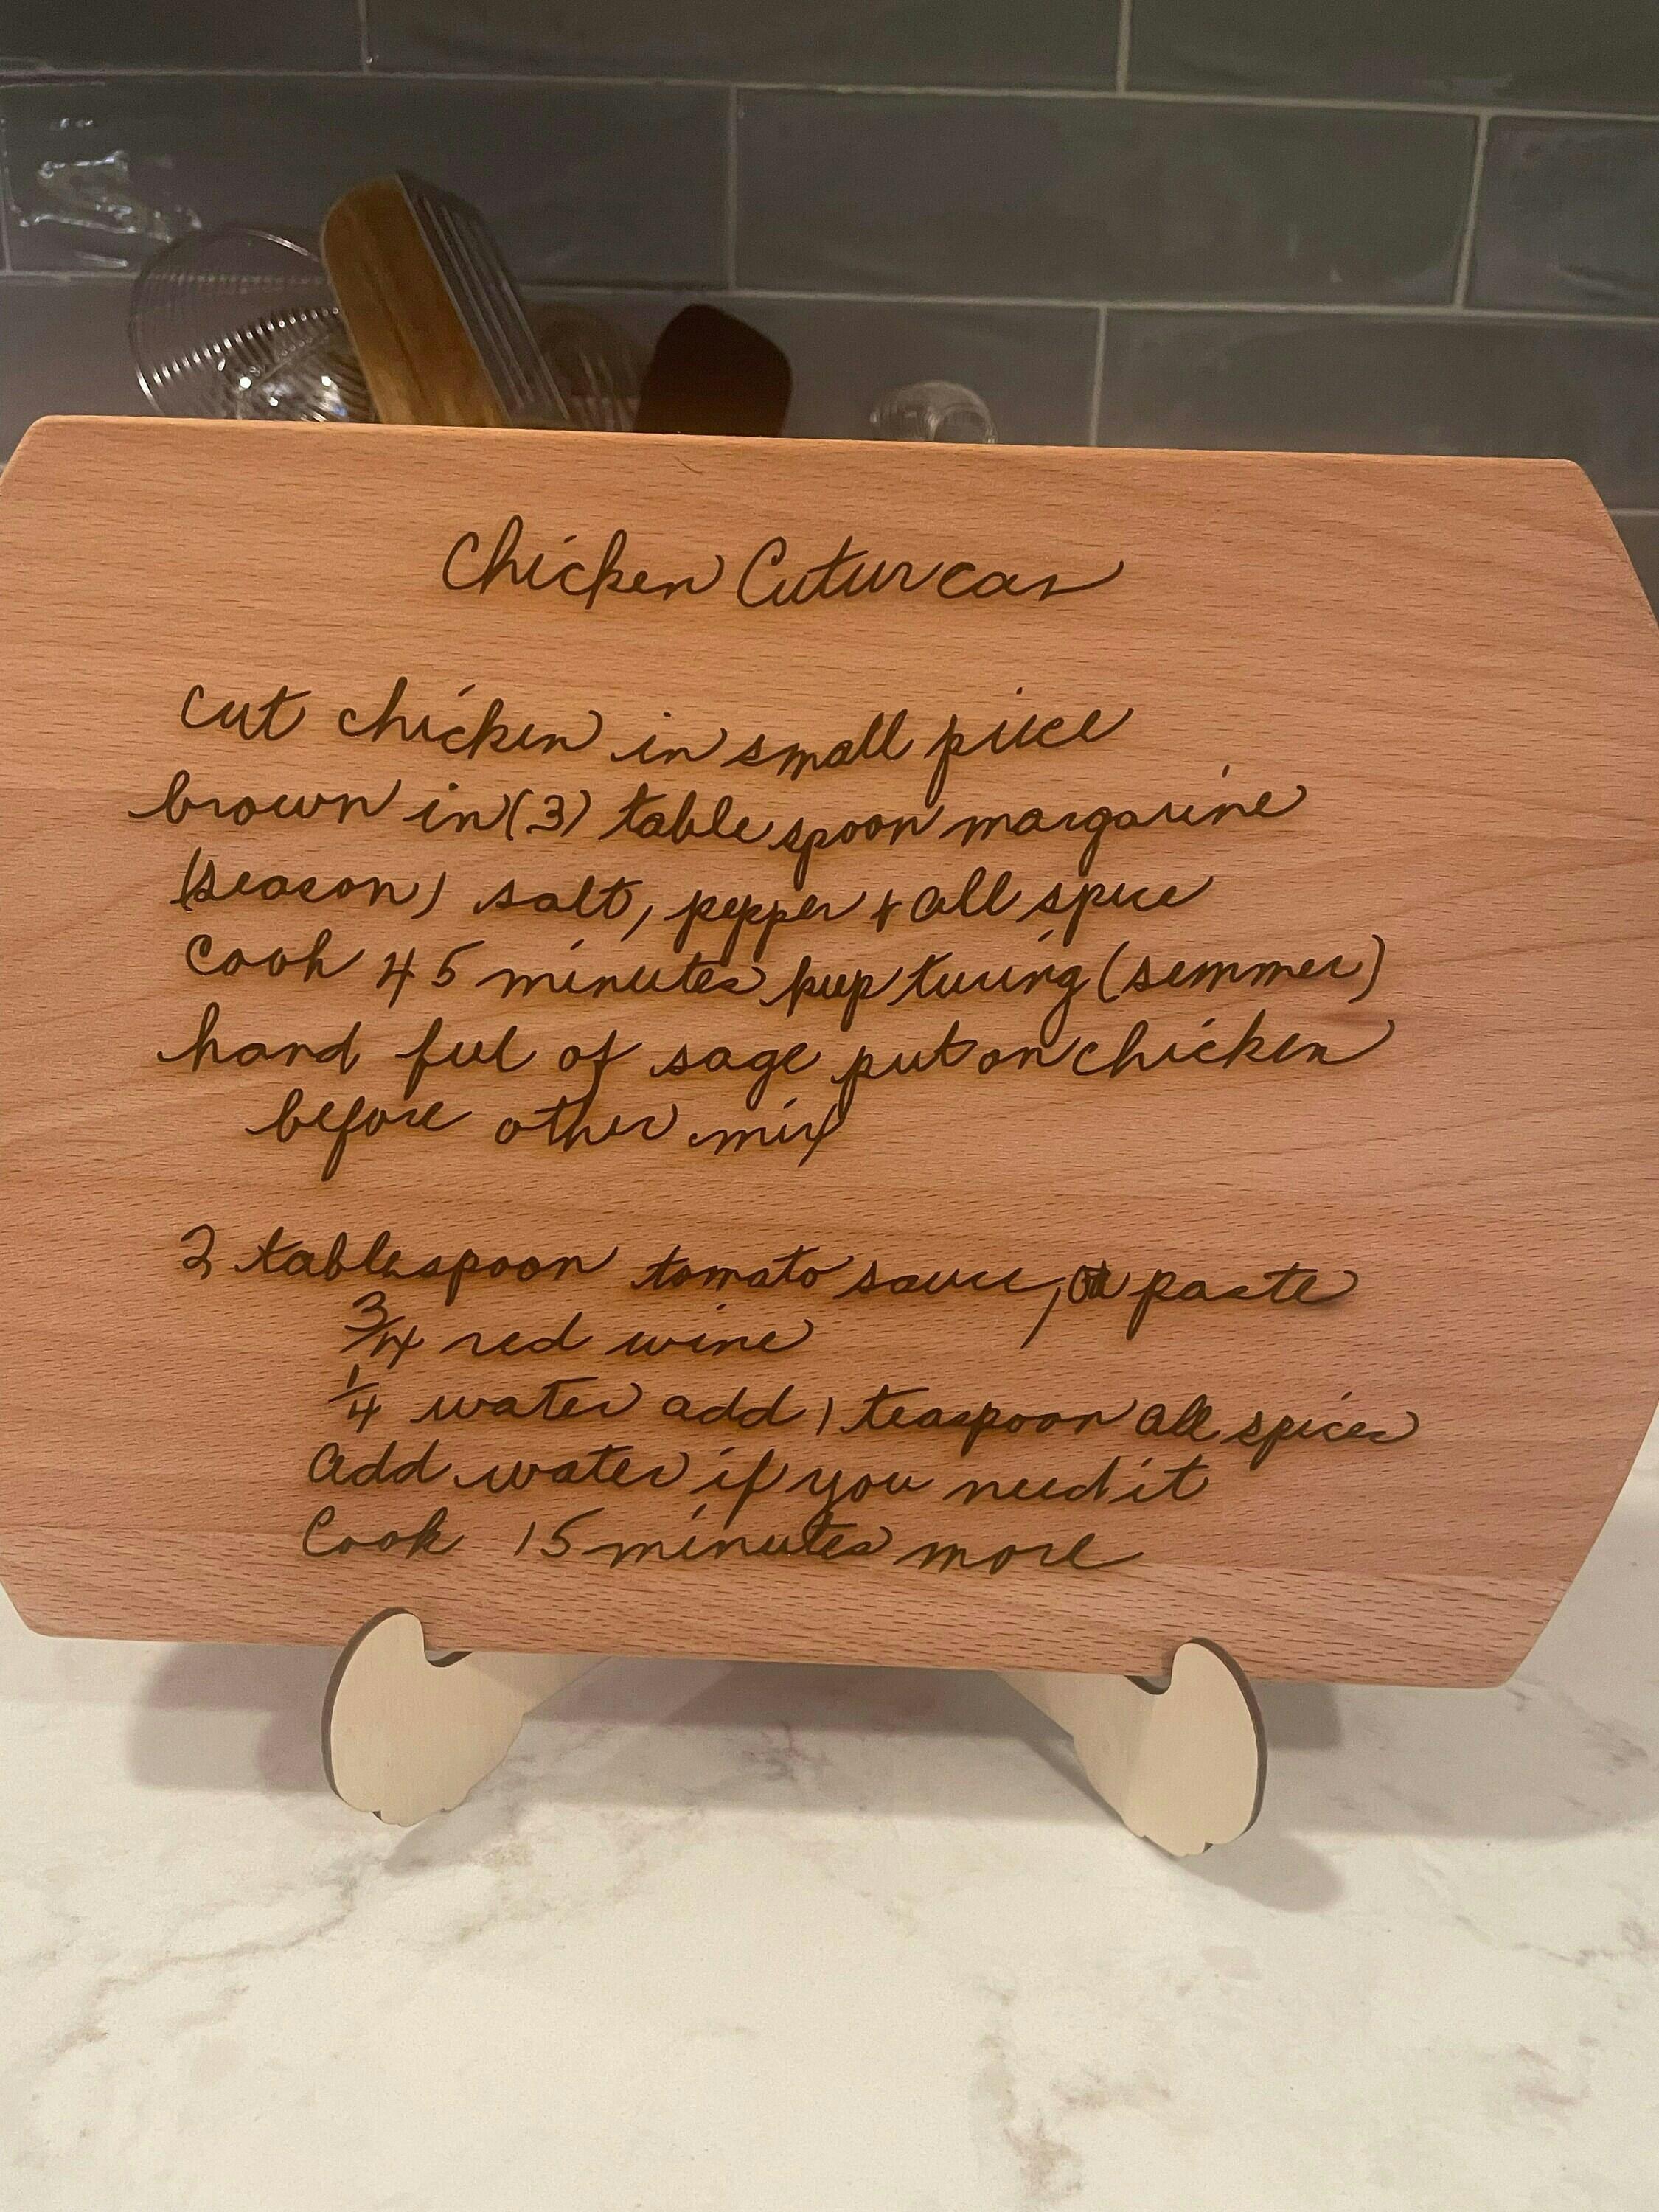 Chicken Cuturcas
cut chicken in small piece
brown in (3) table spoon margarine
(seacon) salt, pepper + all spice
cook 45 minutes keep turing (semmer)
hand ful of sage put on chicken
before other mix
2 tablespoon tomato sauce, or paste
3/4 red wine
1/4 water add 1 teaspoon all spices
add water if you need it
Cook 15 minutes more